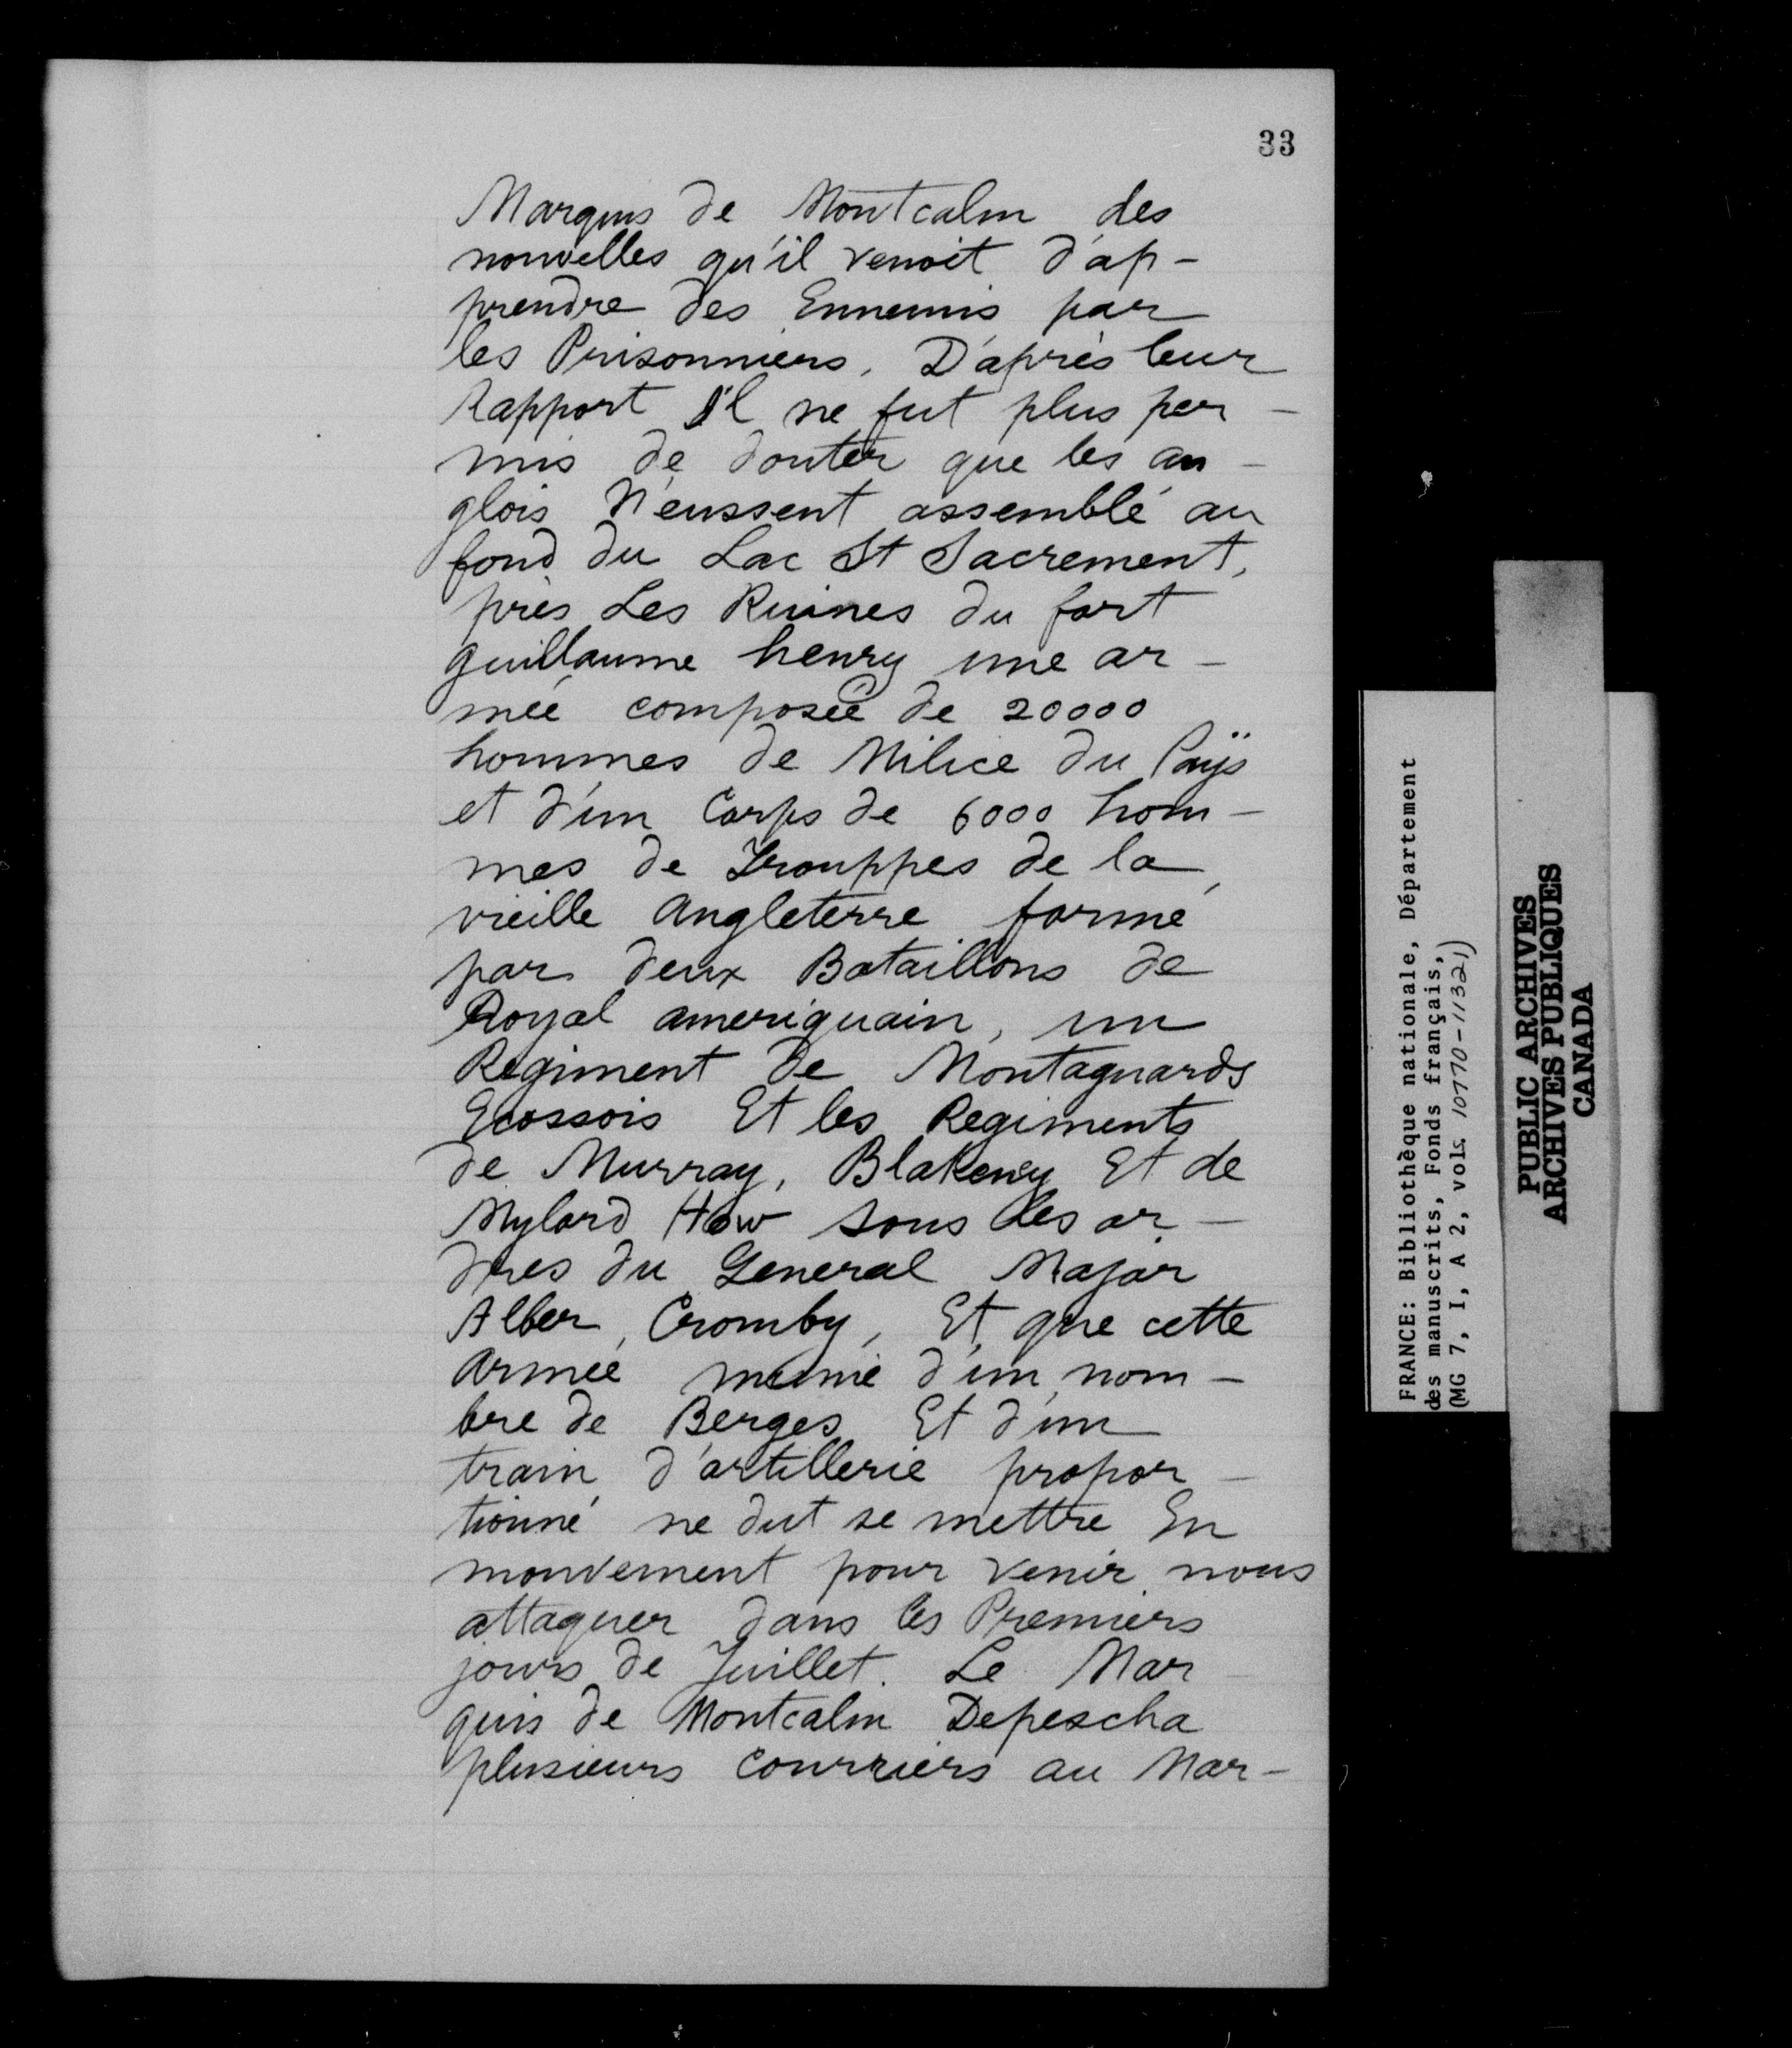 33
Marquis de Montcalm des
nouvelles qu'il venoit d'ap-
prendre des Ennemis par
les Prisonniers. D'après leur
Rapport Il ne fut plus per-
mis de douter que les an-
glois N'eussent assemblé au
fond du Lac St Sacrement,
près Les Ruines du fort
guillaume henry une ar-
mée composée de 20000
hommes de Milice du Paÿs
et d'un Corps de 6000 hom-
mes de Trouppes de la
vieille Angleterre formé
par deux Bataillons de
Royal ameriquain, un
Regiment de Montagnards
Ecossois Et les Regiments
de Murray, Blakeney Et de
Mylord How sous les or-
dres du General Major
Alber Cromby, Et que cette
Armée munie d'un nom-
bre de Berges Et d'un
train d'artillerie propor-
tionné ne dut se mettre En
mouvement pour venir nous
attaquer dans les Premiers
jours de Juillet. Le Mar-
quis de Montcalm Depescha
plusieurs courriers au Mar-
FRANCE: Bibliothèque nationale, Département
des manuscrits, Fonds français,
(MG 7, I, A 2, vols. 10770-11321)
PUBLIC ARCHIVES
ARCHIVES PUBLIQUES
CANADA